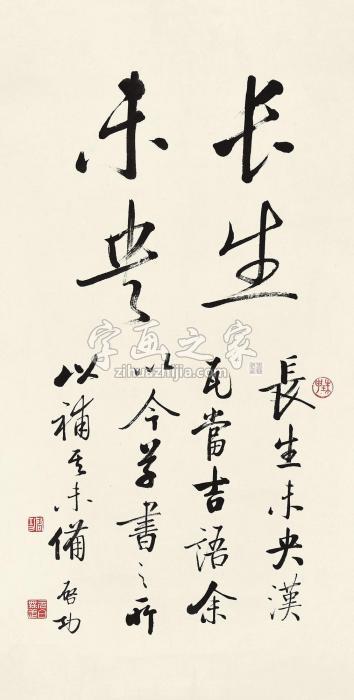 长生
未央
長生未央漢
瓦當吉語余
以今草書之所
以補其未備 啓功
字画之家
zihuazhijia.com